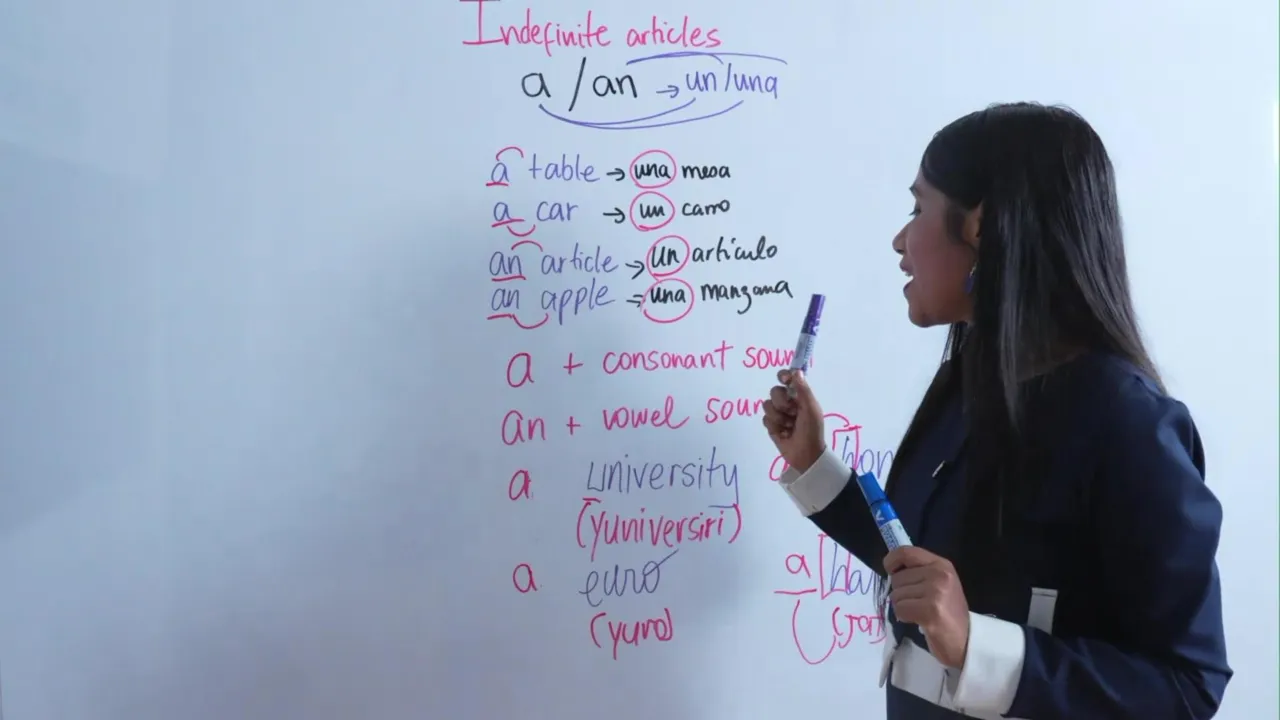 Indefinite articles
a / an → un/una
a table → una mesa
a car → un carro
an article → un artículo
an apple → una manzana
a + consonant soun
an + vowel soun
a university
(yuniversiri)
a euro
(yuro)
a